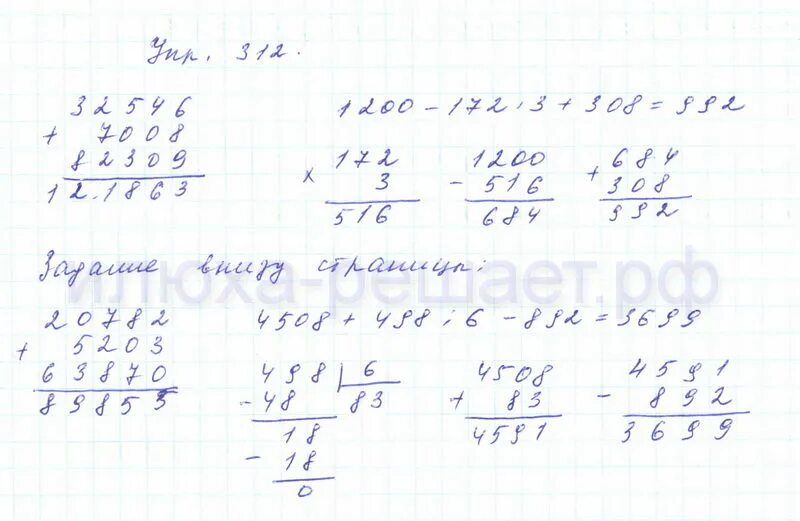 Упр. 312.
32546
+ 7008
82309
12.1863
1200 - 172 · 3 + 308 = 992
× 172
3
516
- 1200
516
684
+ 684
308
992
Задание внизу страницы:
илюха-решает.рф
20782
+ 5203
63870
89855
4508 + 498 : 6 - 892 = 3699
498 | 6
- 48 83
18
- 18
0
4508
+ 83
4591
4591
- 892
3699